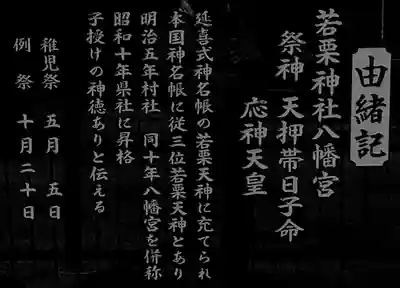 由緒記
若栗神社八幡宮
祭神 天押帯日子命
応神天皇
延喜式神名帳の若栗天神に充てられ
本国神名帳に従三位若栗天神とあり
明治五年村社 同十年八幡宮を併称
昭和十年県社に昇格
子授けの神徳ありと伝える
稚児祭 五月 五日
例祭 十月二十日